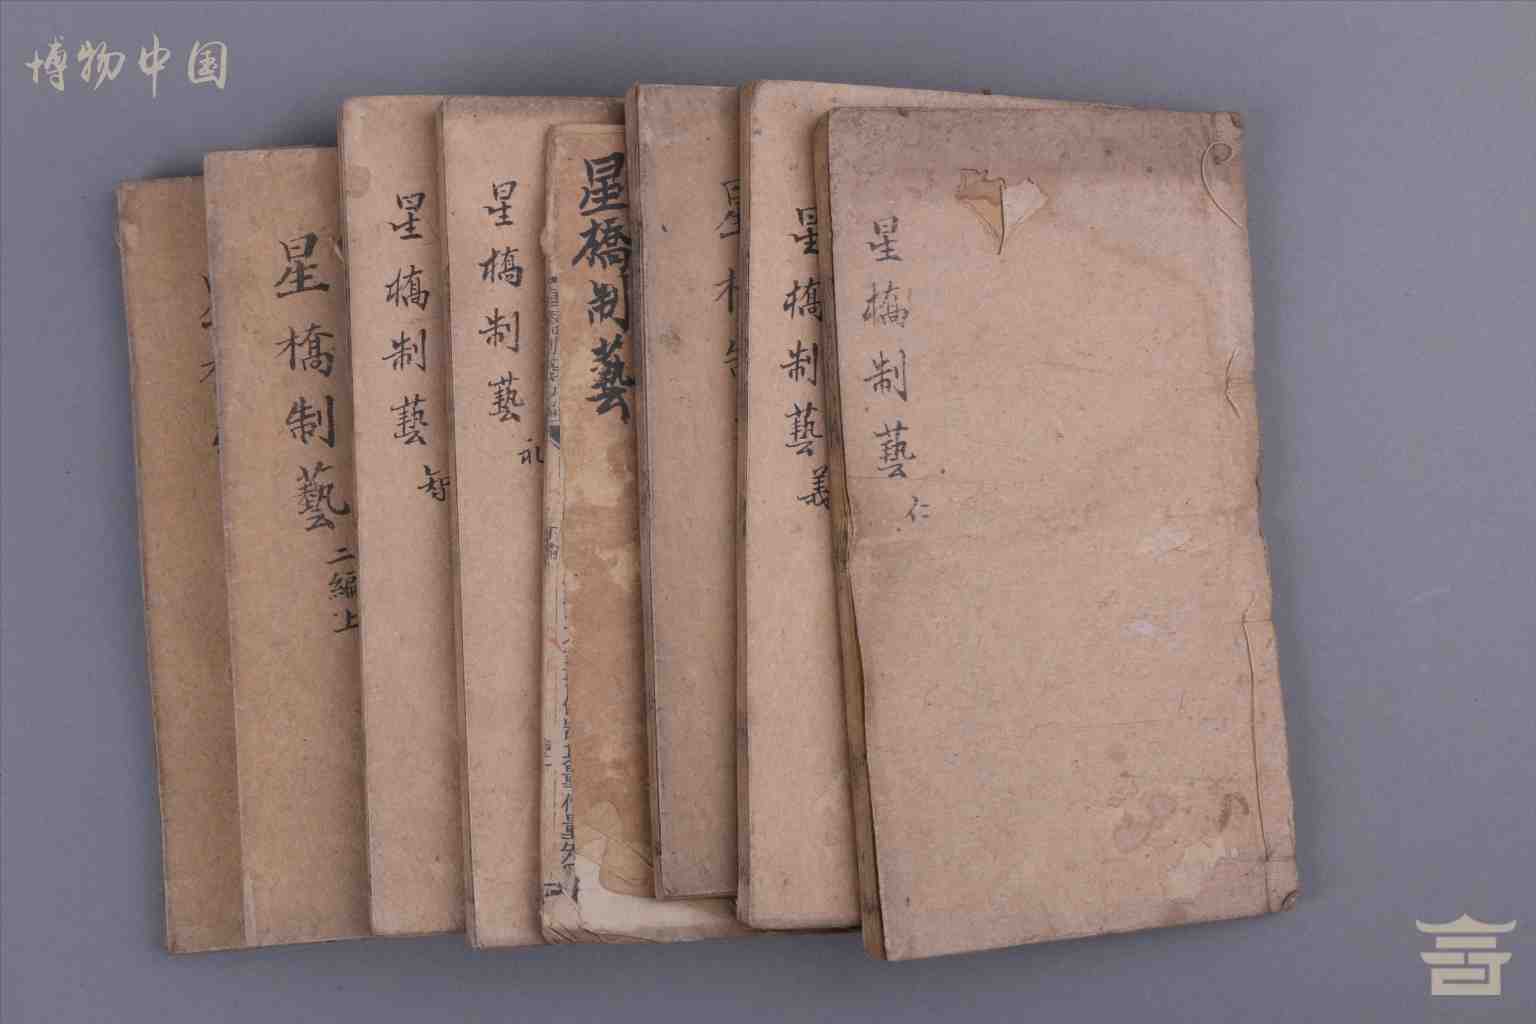 博物中国
星橋制藝 仁
星橋制藝 義
星
星橋制藝
星橋制藝 礼
星橋制藝 智
星橋制藝 二編上